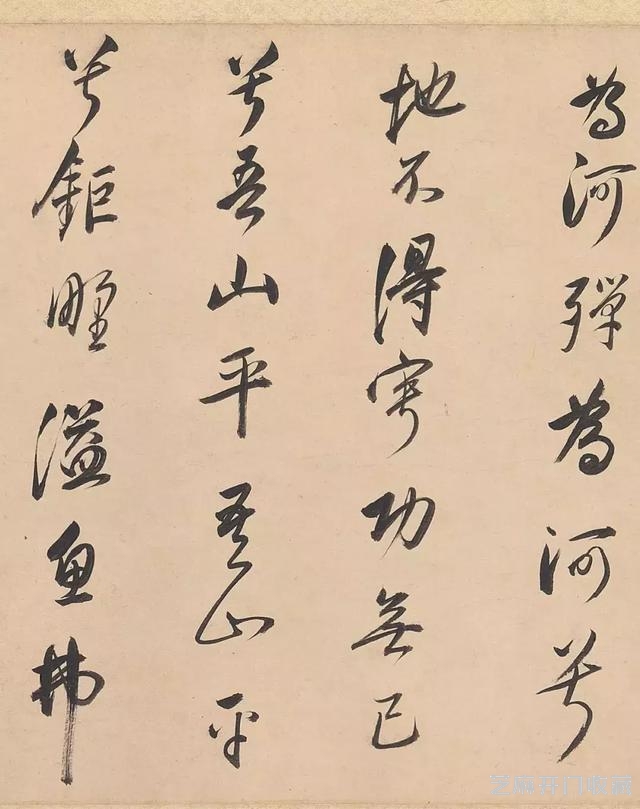 為河殫為河兮
地不得寧功無已
兮吾山平吾山平
兮鉅野溢魚弗